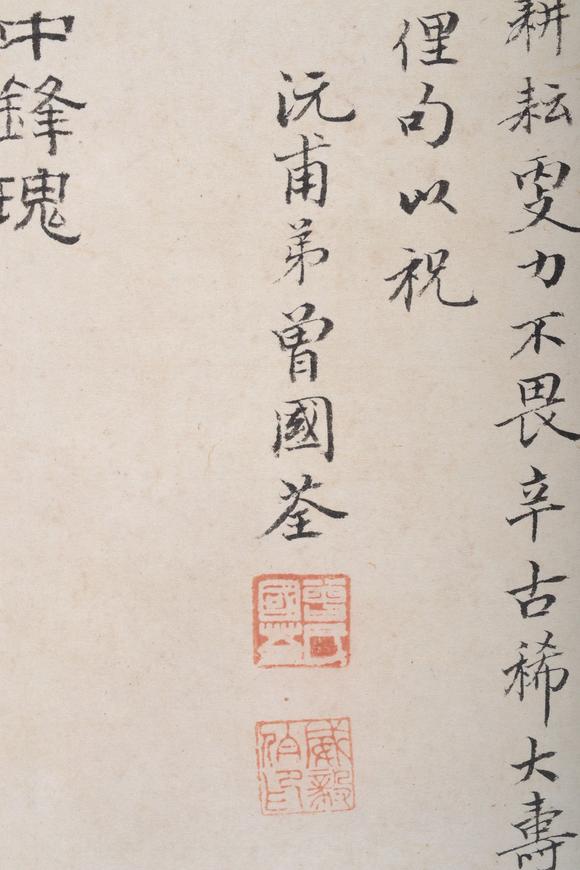 耕耘雯力不畏辛古稀大壽
俚句以祝
沅甫弟曾國荃
曾印國荃
威毅伯印
中鋒瑰